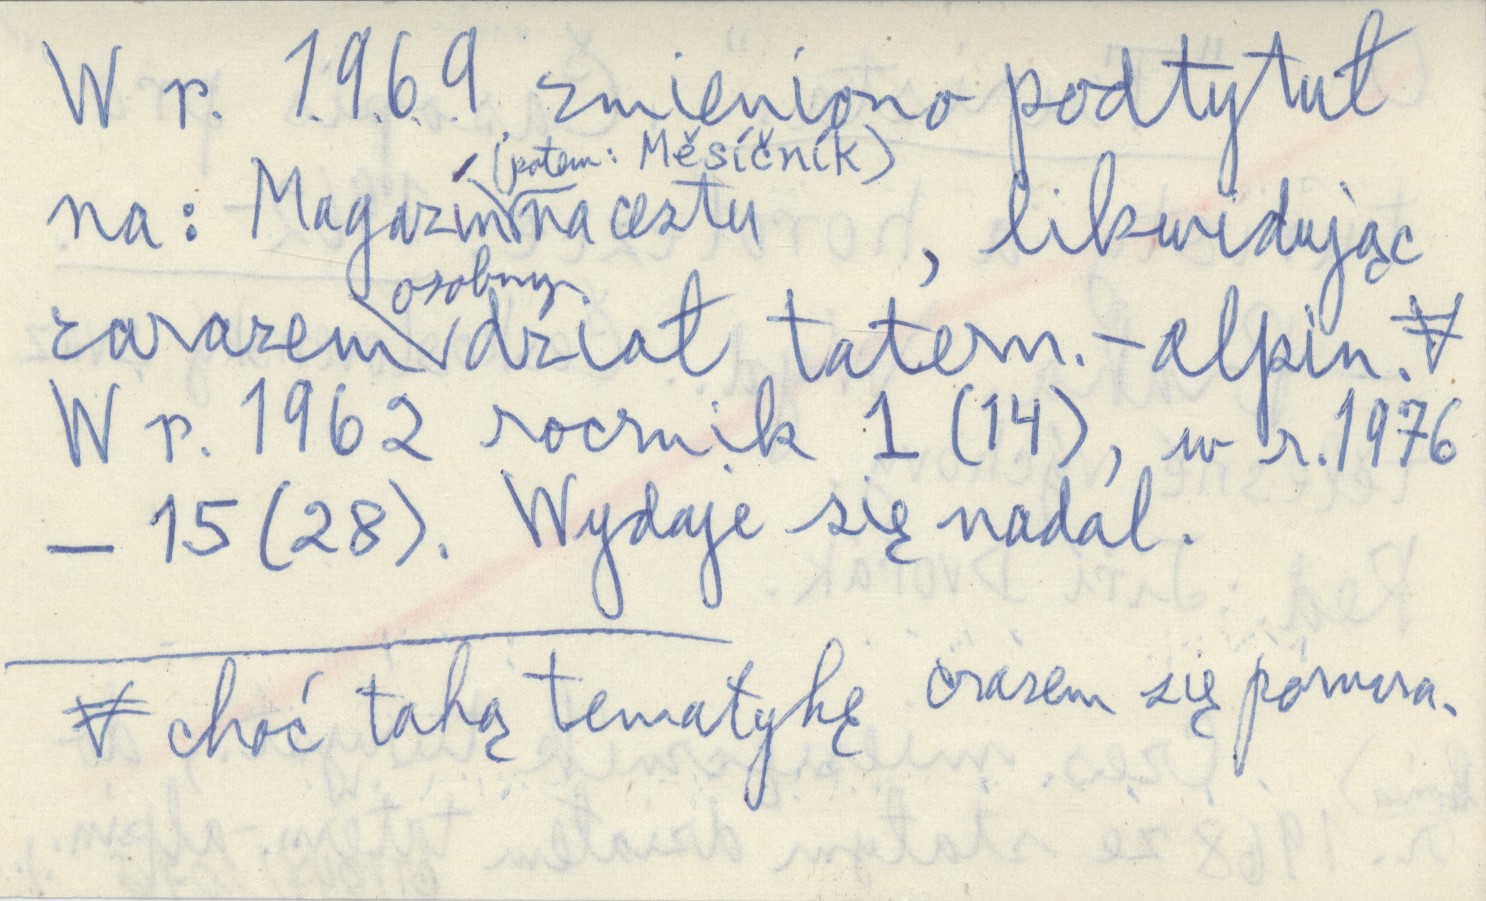 W r. 1969 zmieniono podtytuł
(potem: Měsíčník)
na: Magazin na cestu, likwidując
osobny
zarazem dział tatern.-alpin.
W r. 1962 rocznik 1 (14), w r. 1976
– 15 (28). Wydaje się nadal.
choć taką tematykę czasem się porusza.